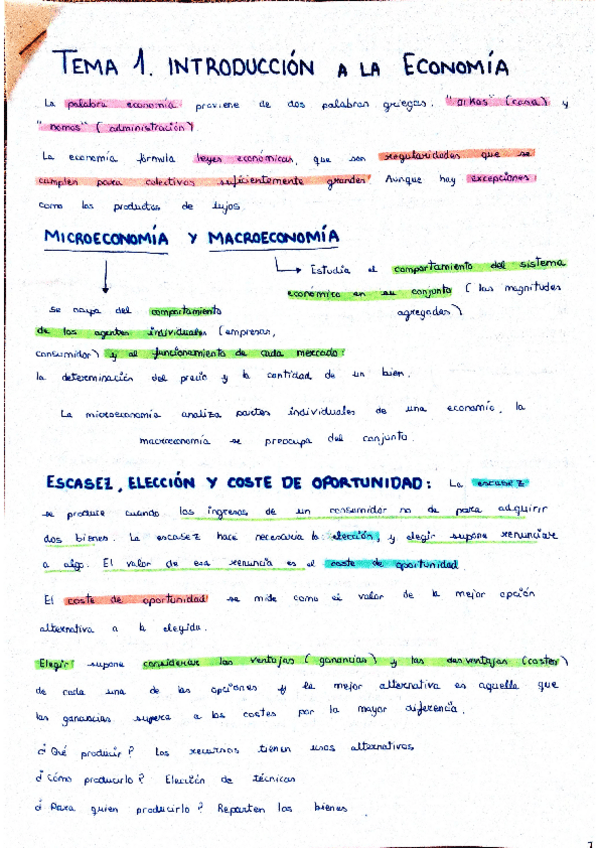 TEMA 1. INTRODUCCIÓN A LA ECONOMÍA
La palabra economía proviene de dos palabras griegas. "oikos" (casa) y
"nomos" (administración)
La economía formula leyes económicas, que son regularidades que se
cumplen para colectivos suficientemente grandes. Aunque hay excepciones
como los productos de lujos.
MICROECONOMÍA Y MACROECONOMÍA
Estudia el comportamiento del sistema
económico en su conjunto (las magnitudes
agregadas)
se ocupa del comportamiento
de los agentes individuales (empresas,
consumidor) y al funcionamiento de cada mercado:
la determinación del precio y la cantidad de un bien.
La microeconomía analiza partes individuales de una economía, la
macroeconomía se preocupa del conjunto.
ESCASEZ, ELECCIÓN Y COSTE DE OPORTUNIDAD: La escasez
se produce cuando los ingresos de un consumidor no da para adquirir
dos bienes. La escasez hace necesaria la elección, y elegir supone renunciar
a algo. El valor de esa renuncia es el coste de oportunidad.
El coste de oportunidad se mide como el valor de la mejor opción
alternativa a la elegida.
Elegir supone considerar las ventajas (ganancias) y las desventajas (costes)
de cada una de las opciones y la mejor alternativa es aquella que
las ganancias supera a los costes por la mayor diferencia.
¿Qué producir? Los recursos tienen usos alternativos
¿Cómo producirlo? Elección de técnicas
¿Para quien producirlo? Reparten los bienes